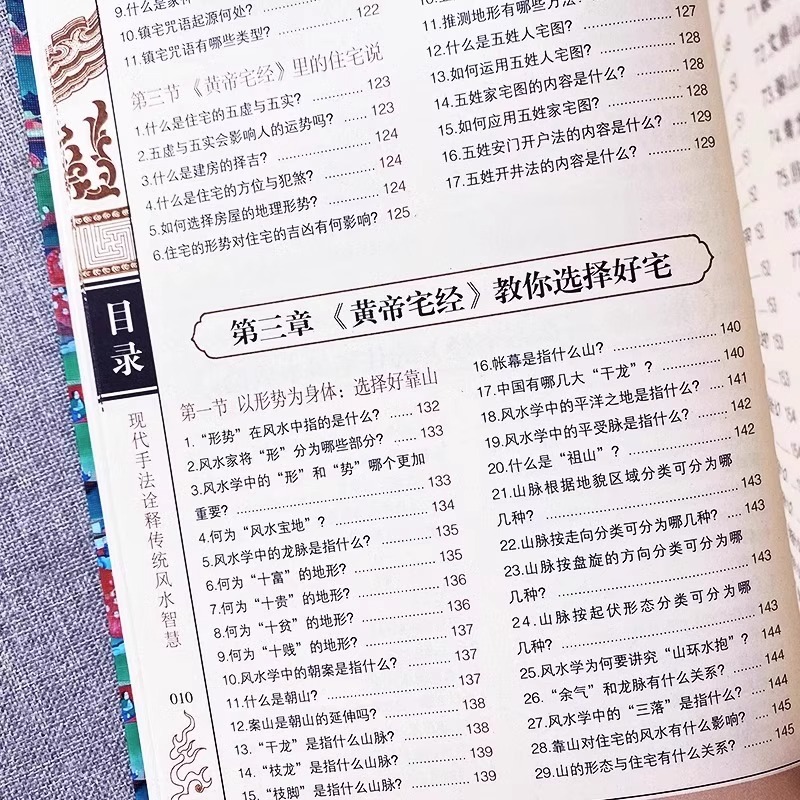 10.镇宅咒语起源何处? ………… 122
11.镇宅咒语有哪些类型?
第三节 《黄帝宅经》里的住宅说
1.什么是住宅的五虚与五实? ………… 123
2.五虚与五实会影响人的运势吗? …… 123
3.什么是建房的择吉? ………… 124
4.什么是住宅的方位与犯煞? ………… 124
5.如何选择房屋的地理形势? ………… 124
6.住宅的形势对住宅的吉凶有何影响? 125
11.推测地形有哪些方法? 127
12.什么是五姓人宅图? ………… 128
13.如何运用五姓人宅图? ………… 128
14.五姓家宅图的内容是什么? ………… 128
15.如何应用五姓家宅图? ………… 128
16.五姓安门开户法的内容是什么? … 129
17.五姓开井法的内容是什么? ……… 129
第三章 《黄帝宅经》教你选择好宅
第一节 以形势为身体：选择好靠山
1.“形势”在风水中指的是什么? …… 132
2.风水家将“形”分为哪些部分? …… 133
3.风水学中的“形”和“势”哪个更加
重要? ………… 133
4.何为“风水宝地”? ………… 134
5.风水学中的龙脉是指什么? ………… 135
6.何为“十富”的地形? ………… 135
7.何为“十贵”的地形? ………… 136
8.何为“十贫”的地形? ………… 136
9.何为“十贱”的地形? ………… 137
10.风水学中的朝案是指什么? ………… 137
11.什么是朝山? ………… 137
12.案山是朝山的延伸吗? ………… 138
13.“干龙”是指什么山脉? ………… 138
14.“枝龙”是指什么山脉? ………… 139
15.“枝脚”是指什么山脉? ………… 139
16.帐幕是指什么山? ………… 140
17.中国有哪几大“干龙”? ………… 140
18.风水学中的平洋之地是指什么? … 141
19.风水学中的平受脉是指什么? …… 142
20.什么是“祖山”? ………… 142
21.山脉根据地貌区域分类可分为哪
几种? ………… 143
22.山脉按走向分类可分为哪几种? … 143
23.山脉按盘旋的方向分类可分为哪
几种? ………… 143
24.山脉按起伏形态分类可分为哪
几种? ………… 143
25.风水学为何要讲究“山环水抱”? 144
26.“余气”和龙脉有什么关系? …… 144
27.风水学中的“三落”是指什么? … 144
28.靠山对住宅的风水有什么影响? … 145
29.山的形态与住宅有什么关系? …… 145
目录
现代手法诠释传统风水智慧
010